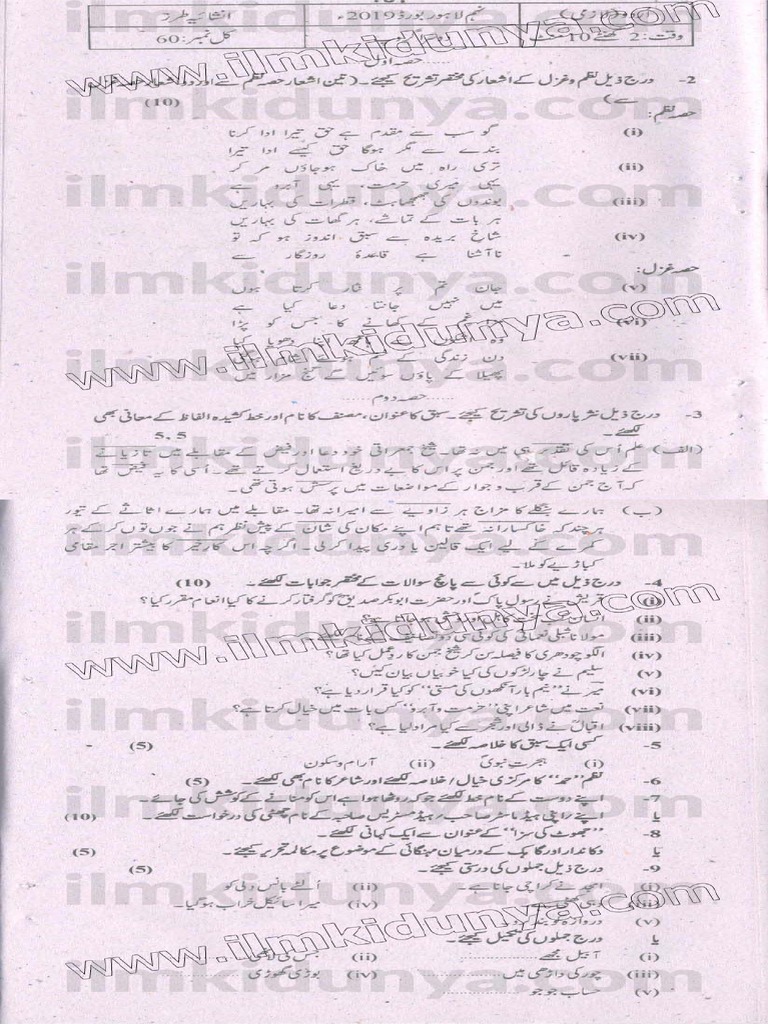 نہم لاہور بورڈ 2019ء
انشائیہ طرز
کل نمبر: 60
حصہ اول
2- درج ذیل نظم و غزل کے اشعار کی مختصر تشریح کیجئے۔ (تین اشعار حصہ نظم سے اور دو اشعار حصہ غزل سے) (10)
حصہ نظم:
(i) گو سب سے مقدم ہے حق تیرا ادا کرنا
بندے سے مگر ہوگا حق کیسے ادا تیرا
(ii) تری راہ میں خاک ہو جاؤں مر کر
یہی میری حرمت، یہی آبرو ہے
(iii) بوندوں کی جھمجھاہٹ، قطرات کی بہاریں
ہر بات کے تماشے، ہر گھات کی بہاریں
(iv) شاخ بریدہ سے سبق اندوز ہو کہ تو
ناآشنا ہے قاعدۂ روزگار سے
حصہ غزل:
(v) جان تم پر نثار کرتا ہوں
میں نہیں جانتا دعا کیا ہے
(vi) کے کھانے کا جس کو پڑا
(vii) دن زندگی کے
پھیلا کے پاؤں سوئیں گے کنج مزار میں
حصہ دوم
3- درج ذیل نثر پاروں کی تشریح کیجئے۔ سبق کا عنوان، مصنف کا نام اور خط کشیدہ الفاظ کے معانی بھی
لکھئے۔ 5,5
(الف) علم اُس کی تقدیر ہی میں نہ تھا۔ شیخ جمعراتی خود دعا اور فیض کے مقابلے میں تازیانے
کے زیادہ قائل تھے اور جمن پر اس کا بے دریغ استعمال کرتے تھے۔ اُسی کا یہ فیض تھا
کہ آج جمن کے قرب و جوار کے مواضعات میں پرسش ہوتی تھی۔
(ب) ہمارے بنگلے کا مزاج ہر زاویے سے امیرانہ تھا۔ مقابلے میں ہمارے اثاثے کے تیور
ہر چند کہ خاکسارانہ تھے تاہم اپنے مکان کی شان کے پیش نظر ہم نے جوں توں کر کے ہر
کمرے کے لیے ایک قالین یا دری پیدا کر لی۔ اگرچہ اس کارِ خیر کا بیشتر اجر مقامی
کباڑیے کو ملا۔
4- درج ذیل میں سے کوئی سے پانچ سوالات کے مختصر جوابات لکھئے۔ (10)
(i) قریش نے رسول پاکؐ اور حضرت ابوبکر صدیقؓ کو گرفتار کرنے کا کیا انعام مقرر کیا؟
(ii)
(iii) مولانا شبلی نعمانی کی کوئی سی دو
(iv) الگو چودھری کا فیصلہ سن کر شیخ جمن کا ردعمل کیا تھا؟
(v) سلیم نے چار لڑکوں کی کیا خوبیاں بیان کیں؟
(vi) میر نے "نیم باز آنکھوں کی مستی" کو کیا قرار دیا ہے؟
(vii) نعت میں شاعر اپنی "حرمت و آبرو" کس بات میں خیال کرتا ہے؟
(viii) اقبالؒ نے ڈالی اور شجر سے کیا مراد لیا ہے؟
5- کسی ایک سبق کا خلاصہ لکھئے۔ (5)
(i) ہجرت نبویؐ (ii) آرام و سکون
6- نظم "حمد" کا مرکزی خیال / خلاصہ لکھئے اور شاعر کا نام بھی لکھئے۔ (5)
7- اپنے دوست کے نام خط لکھئے جو کہ روٹھا ہوا ہے اس کو منانے کی کوشش کی جائے۔
یا اپنے / اپنی ہیڈ ماسٹر صاحب / ہیڈ مسٹریس صاحبہ کے نام چھٹی کی درخواست لکھئے۔ (10)
8- "جھوٹ کی سزا" کے عنوان سے ایک کہانی لکھئے۔
یا دکاندار اور گاہک کے درمیان مہنگائی کے موضوع پر مکالمہ تحریر کیجئے۔ (5)
9- درج ذیل جملوں کی درستی کیجئے۔ (5)
(i) امجد نے کراچی جانا ہے۔ (ii) اُلٹے بانس دلی کو
(iii) (iv) میرا سائیکل خراب ہو گیا۔
(v) دروازہ
یا درج جملوں کی تکمیل کیجئے۔
(i) آ بیل مجھے (ii) جس کی لاٹھی
(iii) چور کی داڑھی میں (iv) بوڑھی گھوڑی
(v) حساب جو جو
www.ilmkidunya.com
ilmkidunya.com
ilmkidunya.com
www.ilmkidunya.com
ilmkidunya.com
ilmkidunya.com
ilmkidunya.com
ilmkidunya.com
www.ilmkidunya.com
ilmkidunya.com
ilmkidunya.com
ilmkidunya.com
www.ilmkidunya.com
ilmkidunya.com